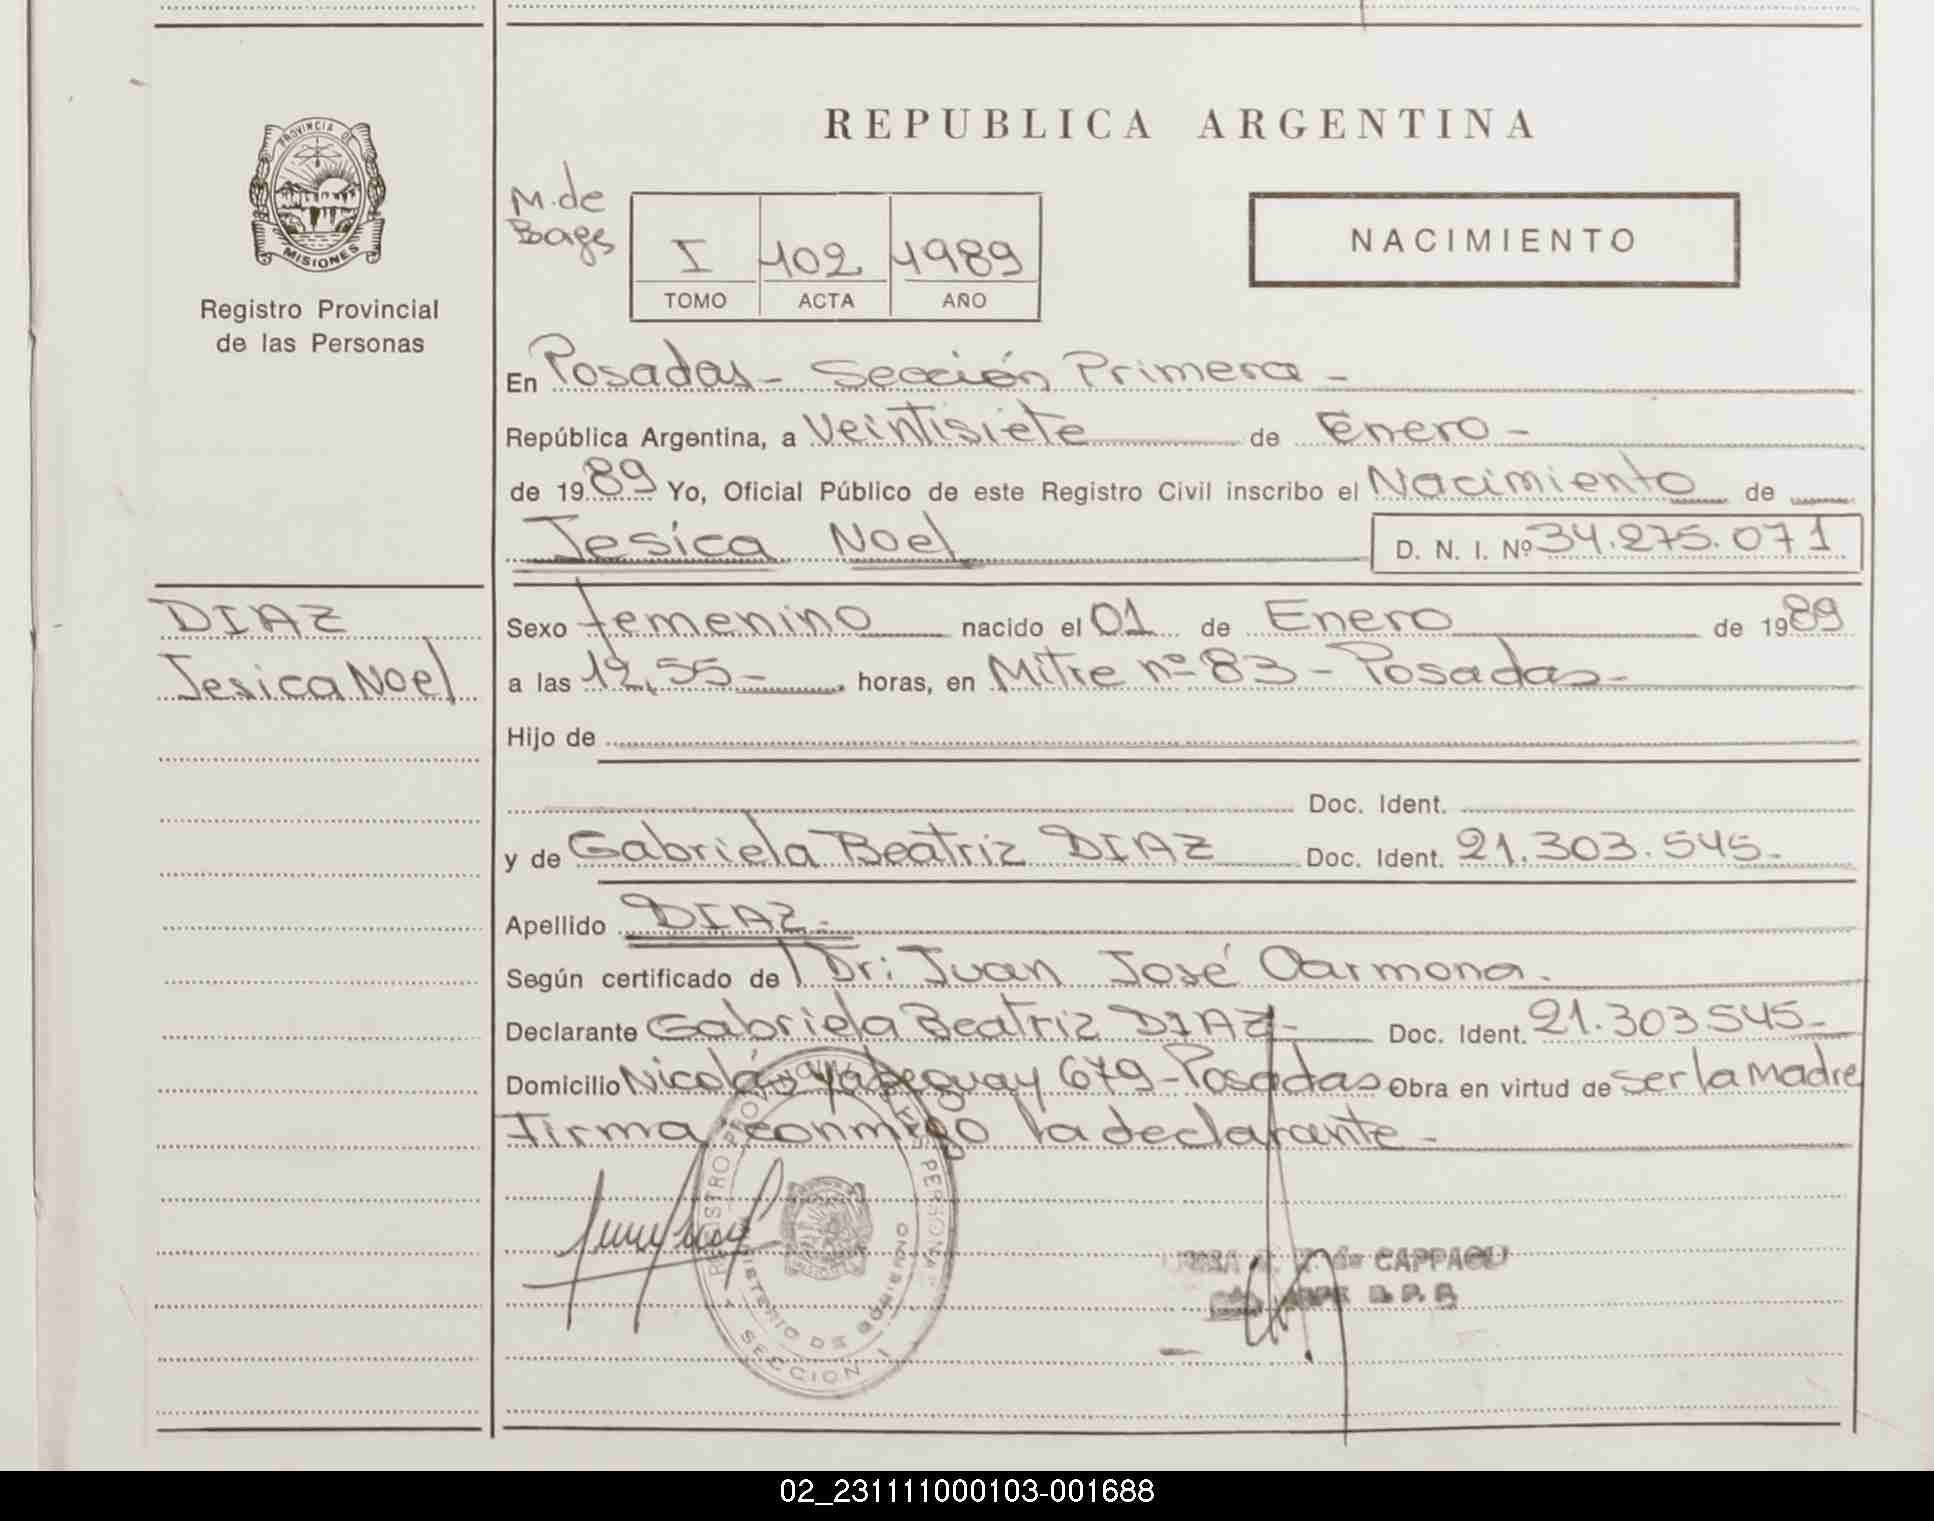 REPUBLICA ARGENTINA
PROVINCIA DE
MISIONES
Registro Provincial
de las Personas
M. de
Bags
I 102 1989
TOMO ACTA AÑO
NACIMIENTO
En Posadas - Sección Primera -
República Argentina, a Veintisiete de Enero -
de 1989 Yo, Oficial Público de este Registro Civil inscribo el Nacimiento de
Jesica Noel D. N. I. Nº 34.275.071
DIAZ
Jesica Noel
Sexo femenino nacido el 01 de Enero de 1989
a las 12,55 - horas, en Mitre nº 83 - Posadas -
Hijo de
Doc. Ident.
y de Gabriela Beatriz DIAZ Doc. Ident. 21.303.545-
Apellido DIAZ -
Según certificado de Dr: Juan José Carmona.
Declarante Gabriela Beatriz DIAZ - Doc. Ident. 21.303545-
Domicilio Nicolás Yapeguay 679 - Posadas Obra en virtud de ser la Madre
Firma conmigo la declarante -
REGISTRO PERSONAS
MINISTERIO DE GOBIERNO
SECCION 1
de CAPPAGLI
02_231111000103-001688